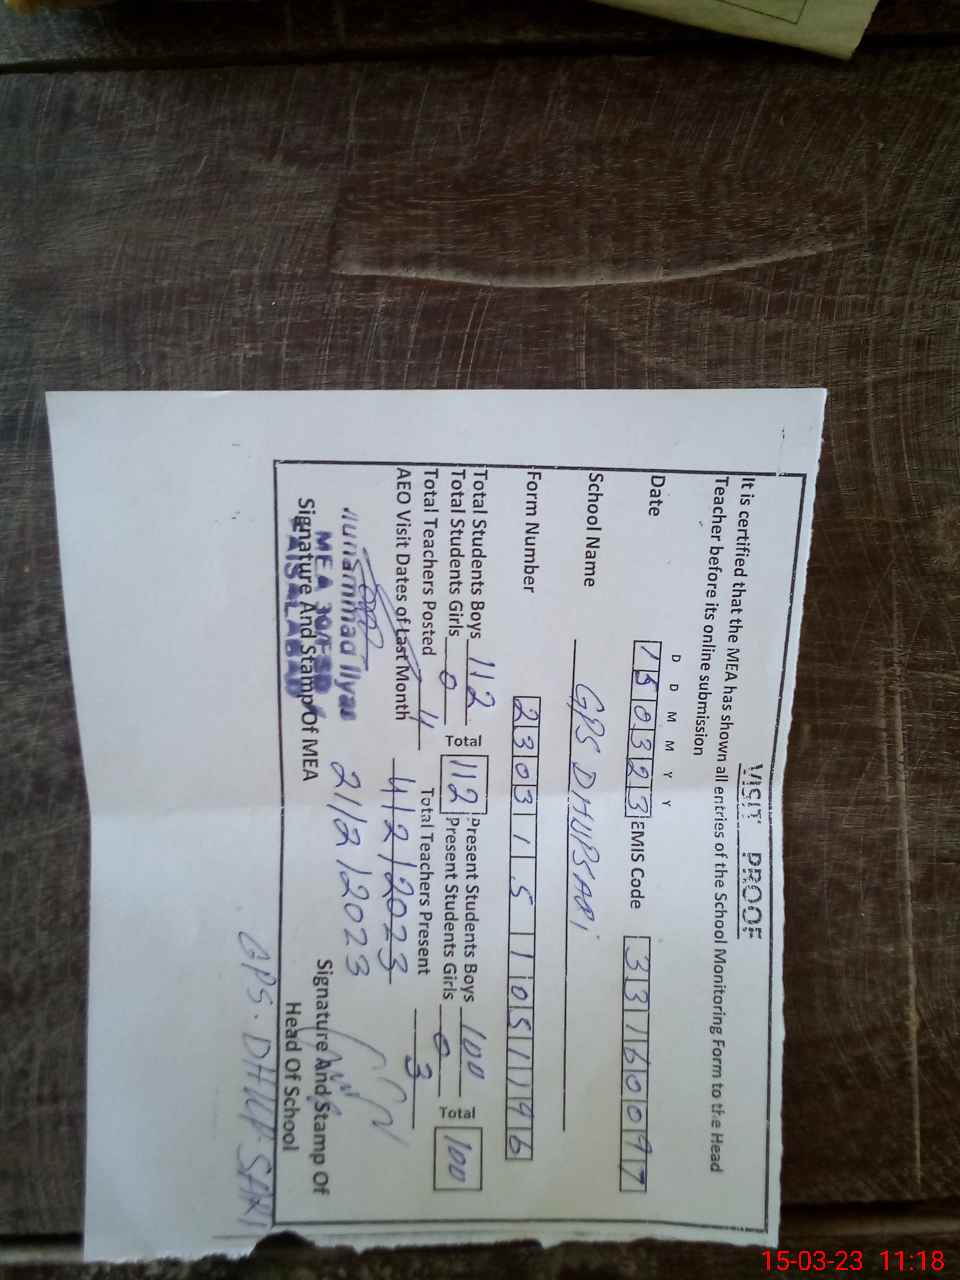 VISIT PROOF
It is certified that the MEA has shown all entries of the School Monitoring Form to the Head
Teacher before its online submission
D D M M Y Y
Date 150323 EMIS Code 33160097
School Name GPS DHUPSARI
Form Number 2303151051196
Total Students Boys 112 Total 112 Present Students Boys 100 Total 100
Total Students Girls 0 Present Students Girls 0
Total Teachers Posted 4 Total Teachers Present 3
AEO Visit Dates of Last Month 4/2/2023
21/2/2023
Muhammad Ilyas
MEA 30/FSD
FAISALABAD
Signature And Stamp Of MEA
Signature And Stamp Of
Head Of School
GPS. DHUP SARI
15-03-23 11:18